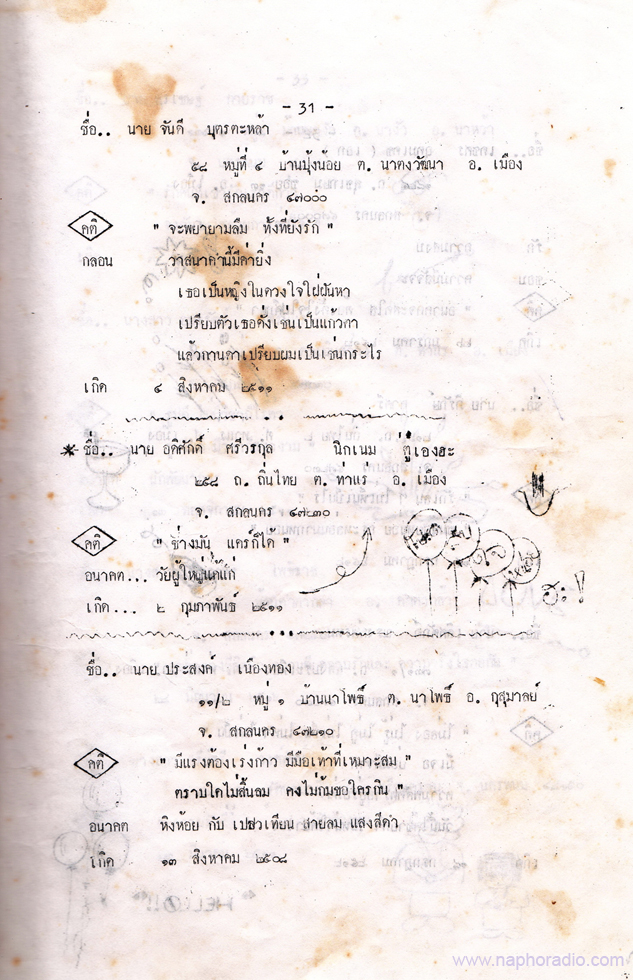 - 31 -
ชื่อ.. นาย จันดี บุตรตะหล้า
๕๘ หมู่ที่ ๔ บ้านนุ้งน้อย ต. นาตงวัฒนา อ. เมือง
จ. สกลนคร ๔๗๐๐๐
คติ " จะพยายามลืม ทั้งที่ยังรัก "
กลอน วาสนาคำนี้มีค่ายิ่ง
เธอเป็นหญิงในดวงใจใฝ่ฝันหา
เปรียบตัวเธอดั่งเช่นเป็นแก้วตา
แล้วกานดาเปรียบผมเป็นเช่นกระไร
เกิด ๔ สิงหาคม ๒๕๑๑
* ชื่อ.. นาย อดิศักดิ์ ศรีวรกุล นิกเนม ตู่เองฮะ
๒๕๘ ถ. ถิ่นไทย ต. ท่าแร่ อ. เมือง
จ. สกลนคร ๔๗๒๓๐
คติ " ช่างมัน แคร์กิได้ "
อนาคต... วัยผู้ใหญ่แก๊แก่
ฮะ!
เกิด... ๒ กุมภาพันธ์ ๒๕๑๑
ชื่อ.. นาย ประสงค์ เนืองทอง
๑๑/๒ หมู่ ๑ บ้านนาโพธิ์ ต. นาโพธิ์ อ. กุสุมาลย์
จ. สกลนคร ๔๗๒๑๐
คติ " มีแรงต้องเร่งก้าว มีมือเท้าที่เหมาะสม "
ตราบใดไม่สิ้นลม คงไม่ก้มขอใครกิน "
อนาคต หิงห้อย กับ เปลวเทียน สายลม แสงสีดำ
เกิด ๑๓ สิงหาคม ๒๕๐๘
HELLO!!
www.naphoradio.com